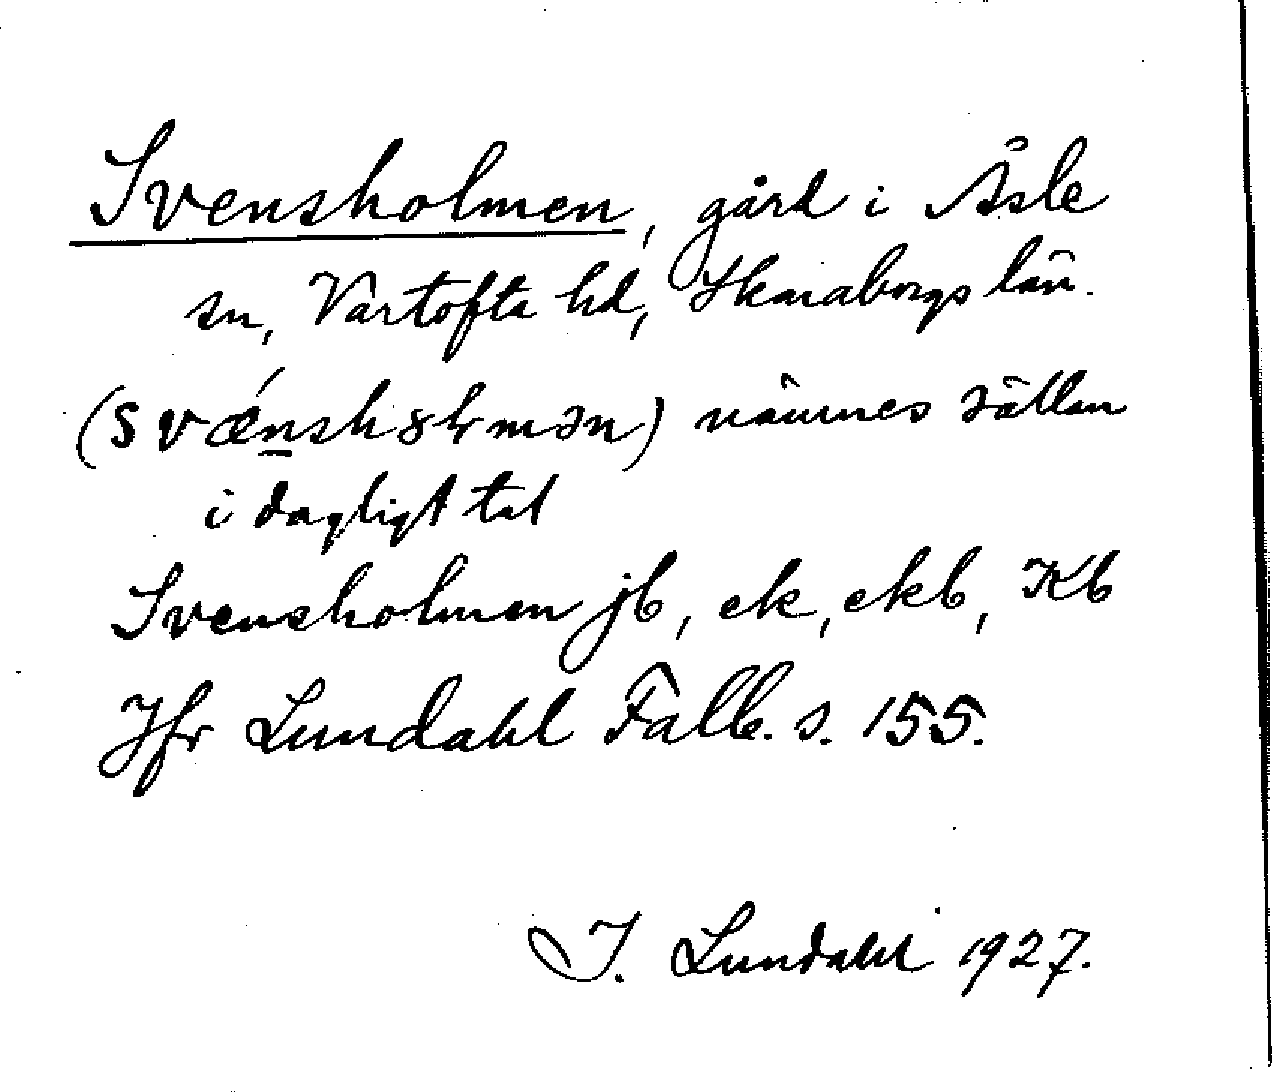 Svensholmen, gård i Åsle
sn, Vartofta hd, Skaraborgs län.
(svǽnsh8ɫmən) nämnes sällan
i dagligt tal
Svensholmen jb, ek, ekb, Kb
Jfr Lundahl Falb. s. 155.
I. Lundahl 1927.